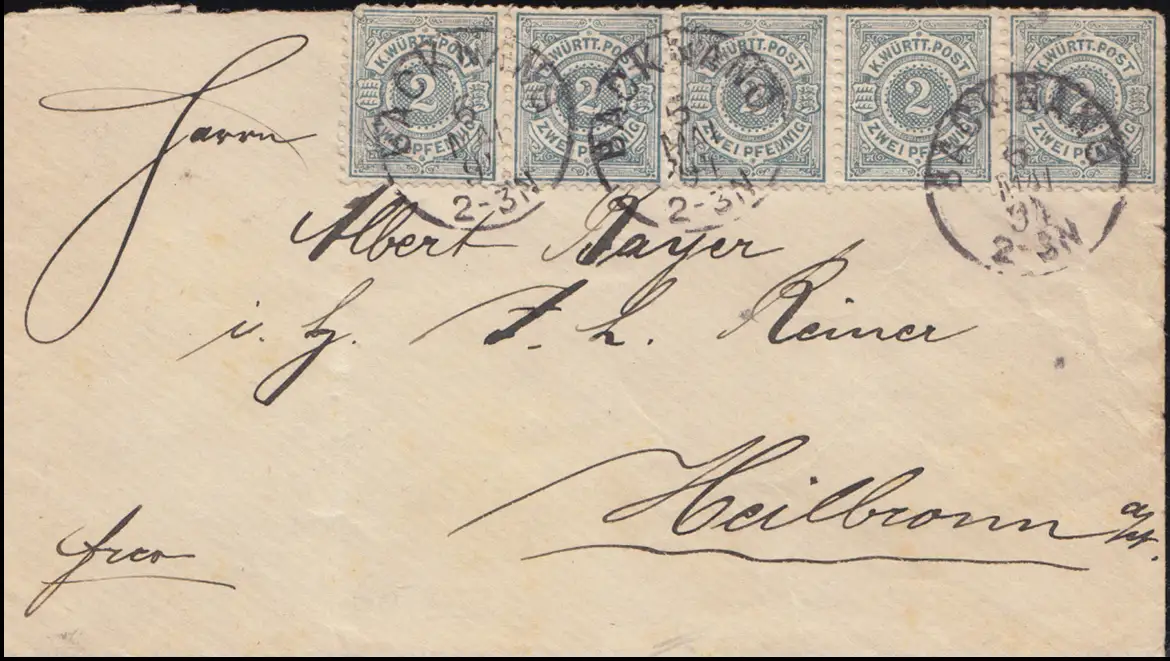 K.WÜRTT.POST K.WÜRTT.POST K.WÜRTT.POST K.WÜRTT.POST K.WÜRTT.POST
2 2 2 2 2
ZWEI PFENNIG ZWEI PFENNIG ZWEI PFENNIG ZWEI PFENNIG ZWEI PFENNIG
BACKNANG
6
MAI
2-3N
BACKNANG
MAI
2-3N
BACKNANG
6
MAI
2-3N
Herrn
Albert Bayer
i. H. F. L. Reiner
Heilbronn a/N.
frco